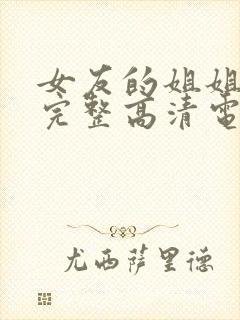 女友的姐姐
完整高清电
尤西萨里德